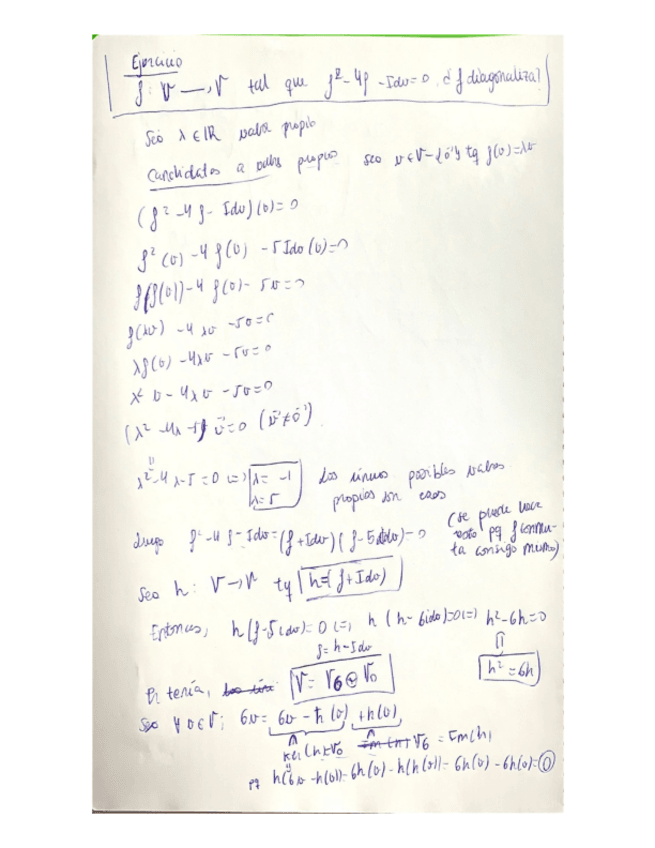 Ejercicio
f: V → V tal que f² - 4f - Idv = 0. ¿f diagonaliza?
Sea λ ∈ ℝ valor propio
Candidatos a valor propio sea v ∈ V - {0⃗} tq f(v) = λv
(f² - 4f - Idv)(v) = 0
f²(v) - 4f(v) - 5Idv(v) = 0
f(f(v)) - 4f(v) - 5v = 0
f(λv) - 4λv - 5v = 0
λf(v) - 4λv - 5v = 0
λ² v - 4λv - 5v = 0
(λ² - 4λ - 5) v⃗ = 0 (v⃗ ≠ 0⃗)
λ² - 4λ - 5 = 0 <=> λ = -1 λ = 5 Los únicos posibles valores
propios son esos
Luego f² - 4f - Idv = (f + Idv)(f - 5Idv) = 0 (se puede hacer
esto pq f conmu-
ta consigo mismo)
Sea h: V → V tq h = (f + Idv)
Entonces, h(f - 5idv) = 0 <=> h(h - 6idv) = 0 <=> h² - 6h = 0
f = h - Idv
h² = 6h
En teoría, V = V6 ⊕ V0
Sea ∀ v ∈ V; 6v = 6v - h(v) + h(v)
Ker(h) = V0 V6 = Im(h)
pq h(6v - h(v)) = 6h(v) - h(h(v)) = 6h(v) - 6h(v) = 0